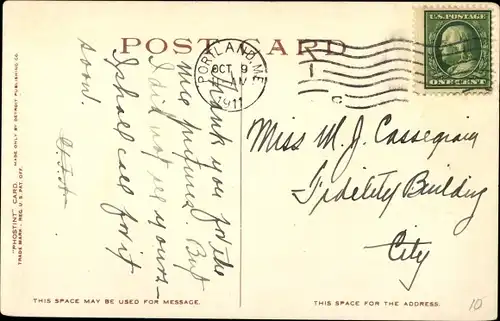 POST CARD
PORTLAND, ME.
OCT 9
1911
U.S. POSTAGE
ONE CENT
Thank you for the
me pictures. But
I did not see yours –
I shall call for it
soon.
Miss M. J. Cassegrain
Fidelity Building
City
THIS SPACE MAY BE USED FOR MESSAGE.
THIS SPACE FOR THE ADDRESS.
"PHOSTINT" CARD. MADE ONLY BY DETROIT PUBLISHING CO.
TRADE MARK - REG. U.S. PAT. OFF.
10